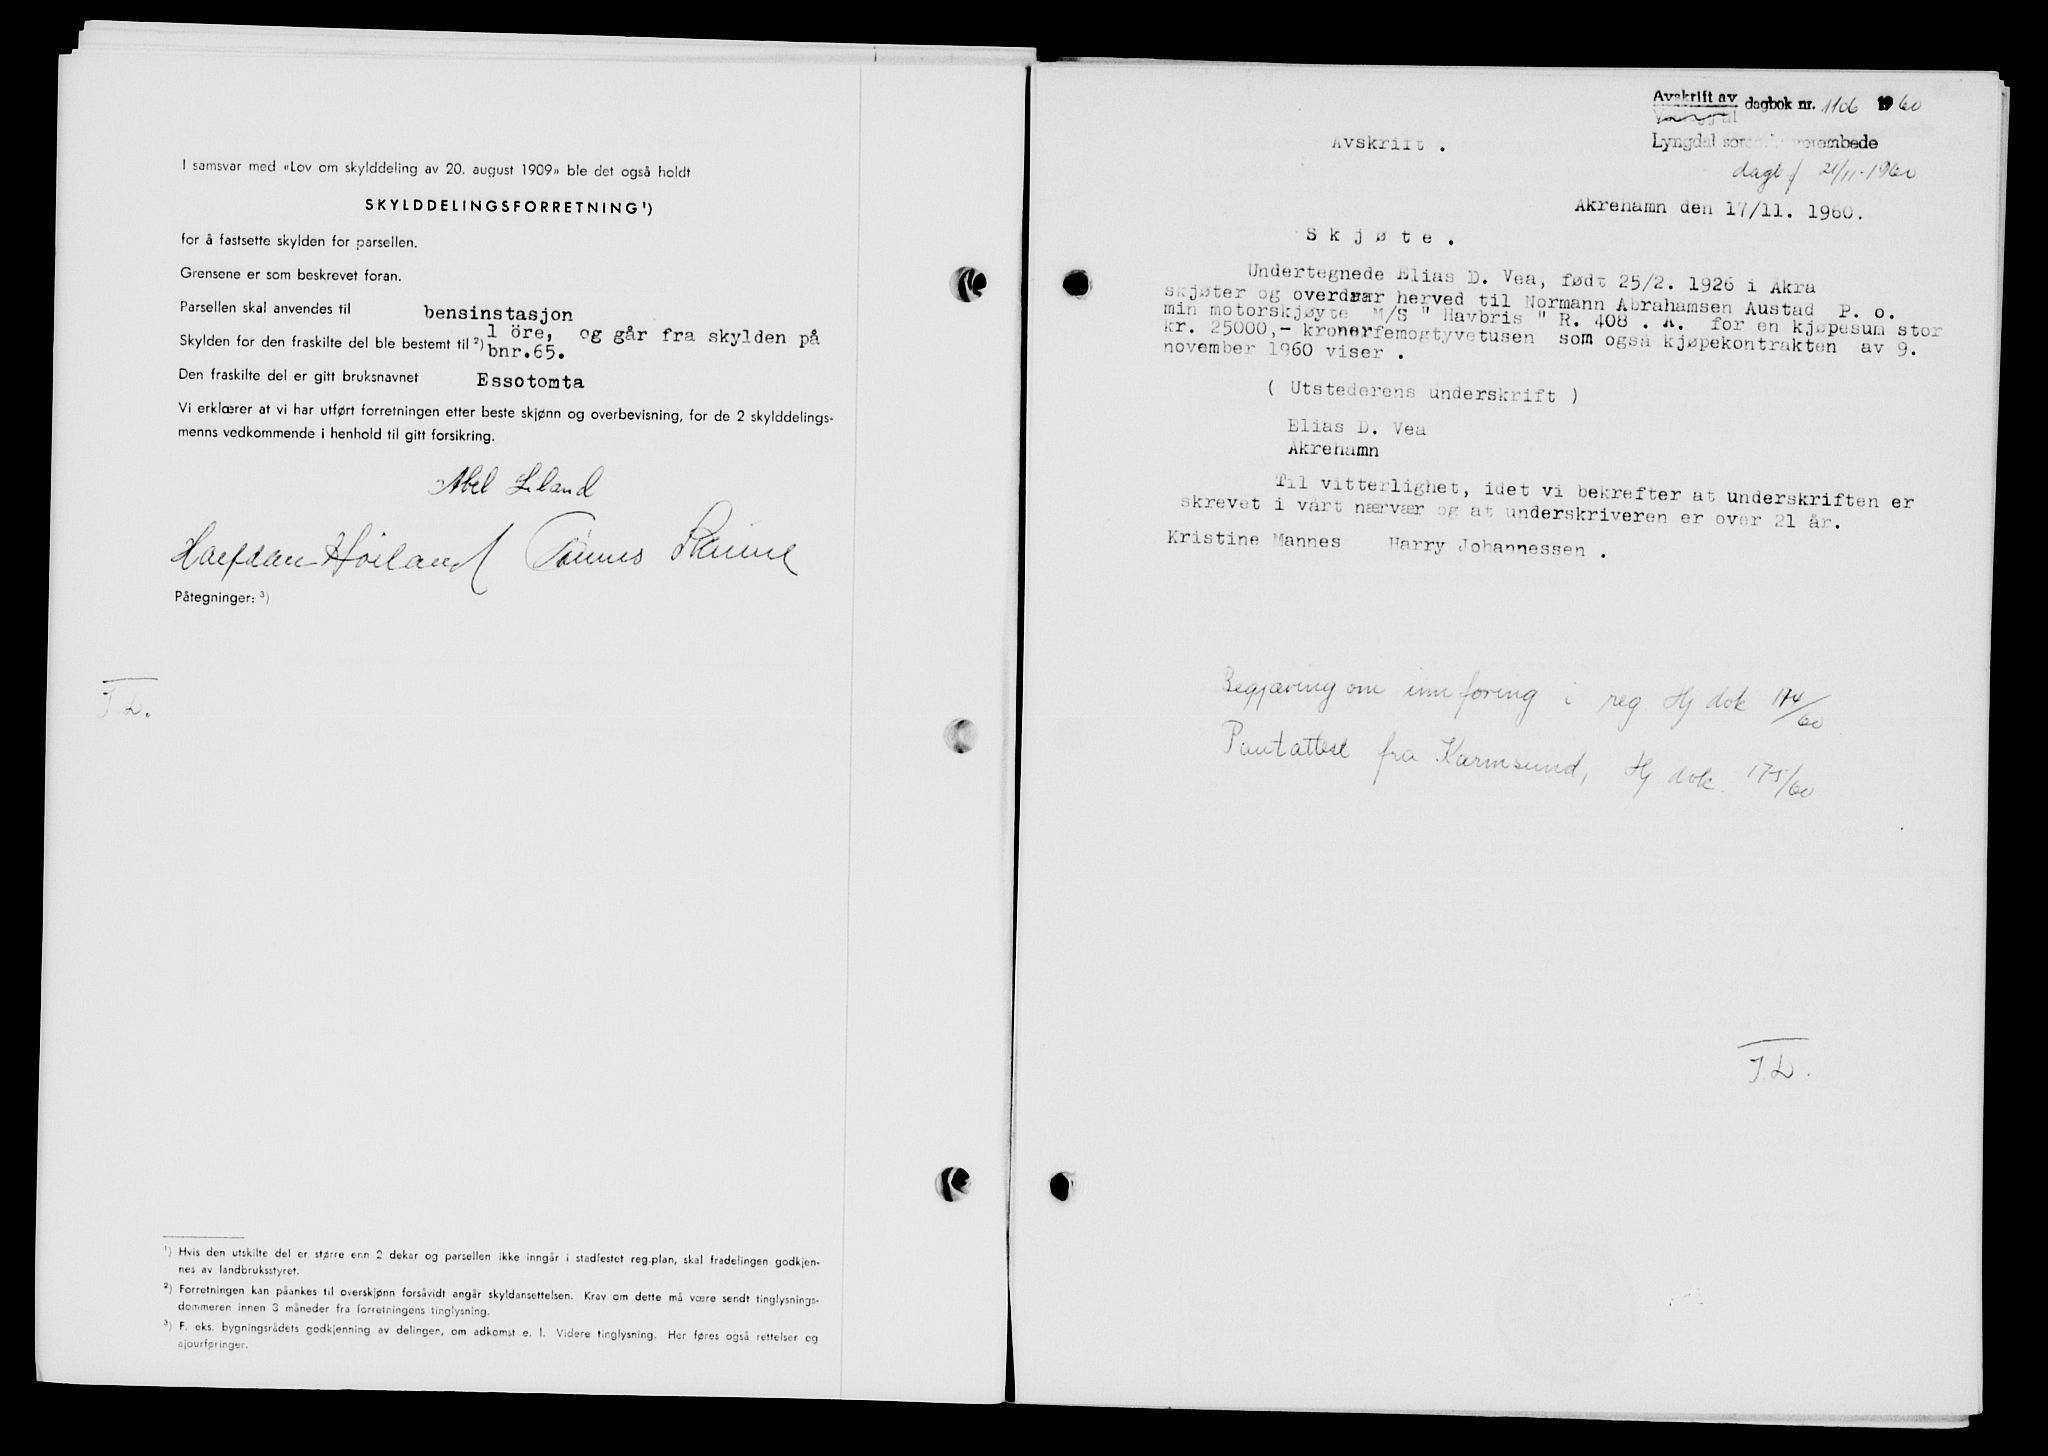 I samsvar med «Lov om skylddeling av 20. august 1909» ble det også holdt
SKYLDDELINGSFORRETNING¹)
for å fastsette skylden for parsellen.
Grensene er som beskrevet foran.
Parsellen skal anvendes til bensinstasjon
Skylden for den fraskilte del ble bestemt til ²) 1 öre, og går fra skylden på
bnr.65.
Den fraskilte del er gitt bruksnavnet Essotomta
Vi erklærer at vi har utført forretningen etter beste skjønn og overbevisning, for de 2 skylddelings-
menns vedkommende i henhold til gitt forsikring.
Abel Liland
Halfdan Høiland Tønnes
Påtegninger: ³)
T.L.
¹) Hvis den utskilte del er større enn 2 dekar og parsellen ikke inngår i stadfestet reg.plan, skal fradelingen godkjen-
nes av landbruksstyret.
²) Forretningen kan påankes til overskjønn forsåvidt angår skyldansettelsen. Krav om dette må være sendt tinglysnings-
dommeren innen 3 måneder fra forretningens tinglysning.
³) F. eks. bygningsrådets godkjenning av delingen, om adkomst e. l. Videre tinglysning. Her føres også rettelser og
ajourføringer.
Avskrift av dagbok nr. 1106 1960
Lyngdal sorenskriverembede
dagbf 21/11-1960
Avskrift .
Akrehamn den 17/11. 1960.
S k j ø t e .
Undertegnede Elias D. Vea, født 25/2. 1926 i Akra
skjøter og overdrar herved til Normann Abrahamsen Austad P. o.
min motorskjøyte M/S " Havbris " R. 408 . A. for en kjøpesum stor
kr. 25000,- kronerfemogtyvetusen som også kjøpekontrakten av 9.
november 1960 viser .
( Utstederens underskrift )
Elias D. Vea
Akrehamn
Til vitterlighet, idet vi bekrefter at underskriften er
skrevet i vårt nærvær og at underskriveren er over 21 år.
Kristine Mannes Harry Johannessen .
Begjæring om innføring i reg Hj dok 174/60
Pantattest fra Karmsund, Hj dok. 175/60
T.L.